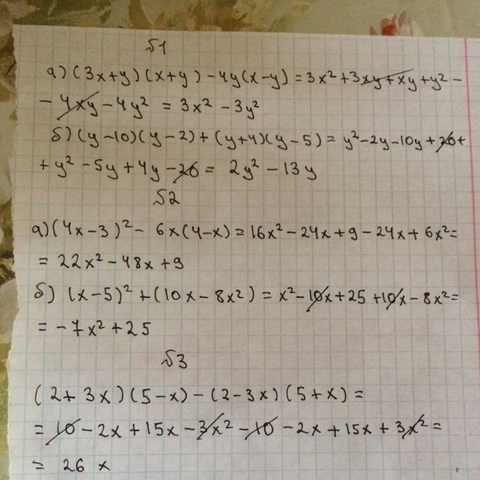 №1
а) (3x+y)(x+y) - 4y(x-y) = 3x² + 3xy + xy + y² -
- 4xy - 4y² = 3x² - 3y²
б) (y-10)(y-2) + (y+4)(y-5) = y² - 2y - 10y + 20 +
+ y² - 5y + 4y - 20 = 2y² - 13y
№2
а) (4x-3)² - 6x(4-x) = 16x² - 24x + 9 - 24x + 6x² =
= 22x² - 48x + 9
б) (x-5)² + (10x - 8x²) = x² - 10x + 25 + 10x - 8x² =
= -7x² + 25
№3
(2+3x)(5-x) - (2-3x)(5+x) =
= 10 - 2x + 15x - 3x² - 10 - 2x + 15x + 3x² =
= 26x